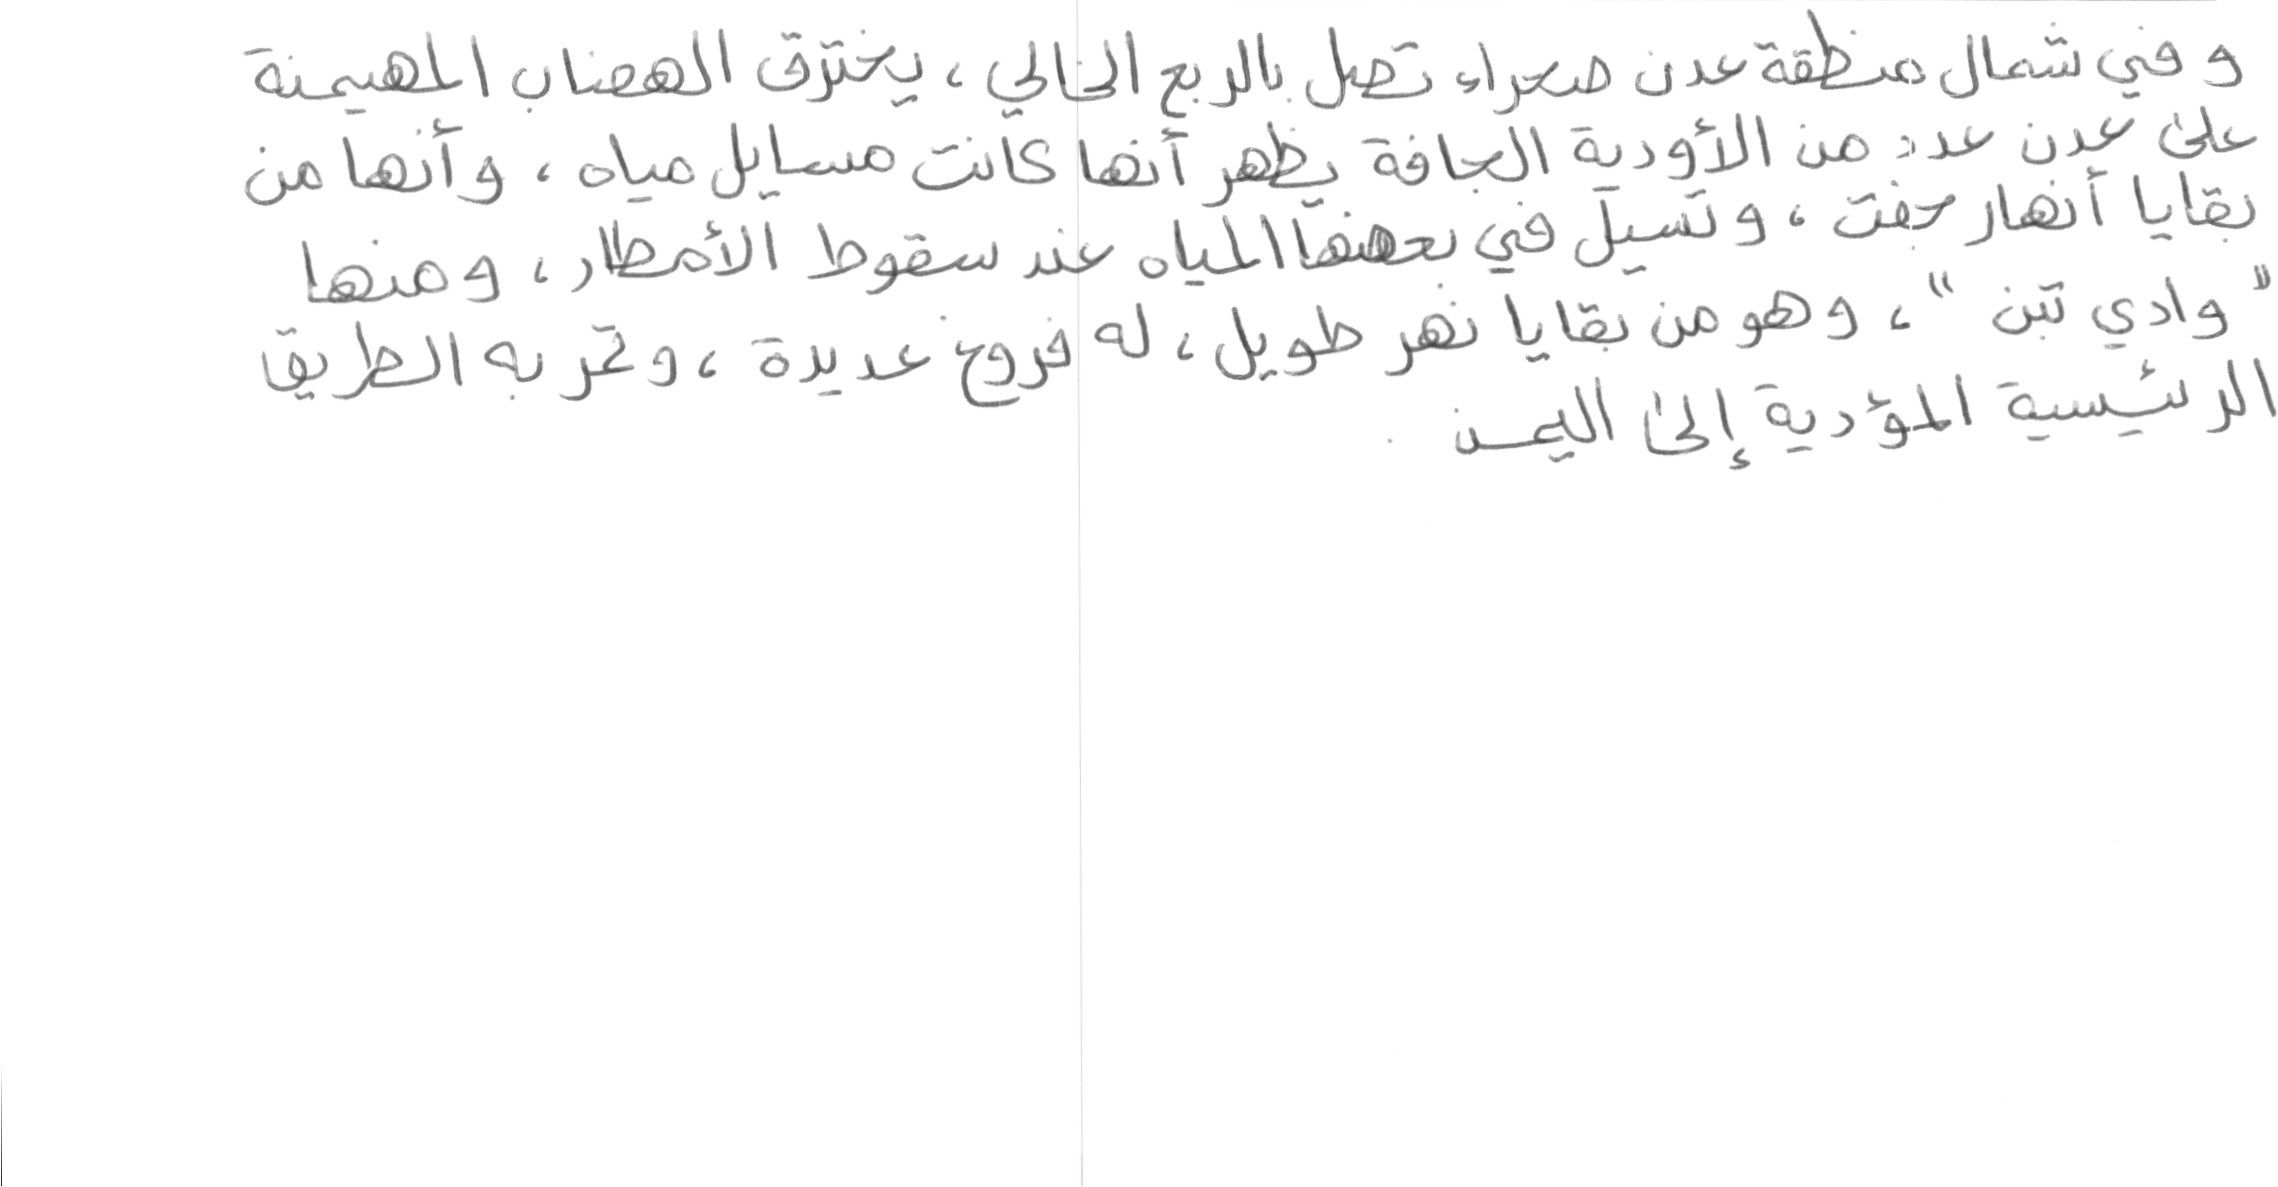 و في شمال منطقة عدن صحراء تصل بالربع الخالي، يخترق الهضاب المهيمنة
على عدن عدد من الأودية الجافة يظهر أنها كانت مسايل مياه، وأنها من
بقايا أنهار جفت، وتسيل في بعضها المياه عند سقوط الأمطار، ومنها
"وادي تبن"، وهو من بقايا نهر طويل، له فروع عديدة، وتمر به الطريق
الرئيسية المؤدية إلى اليمن.